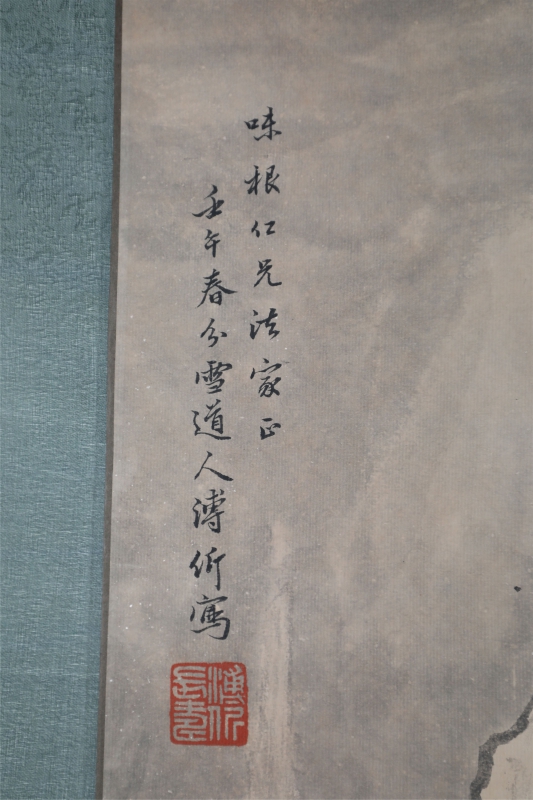 味根仁兄法家正
壬午春分雪道人溥伒寫
溥伒長壽